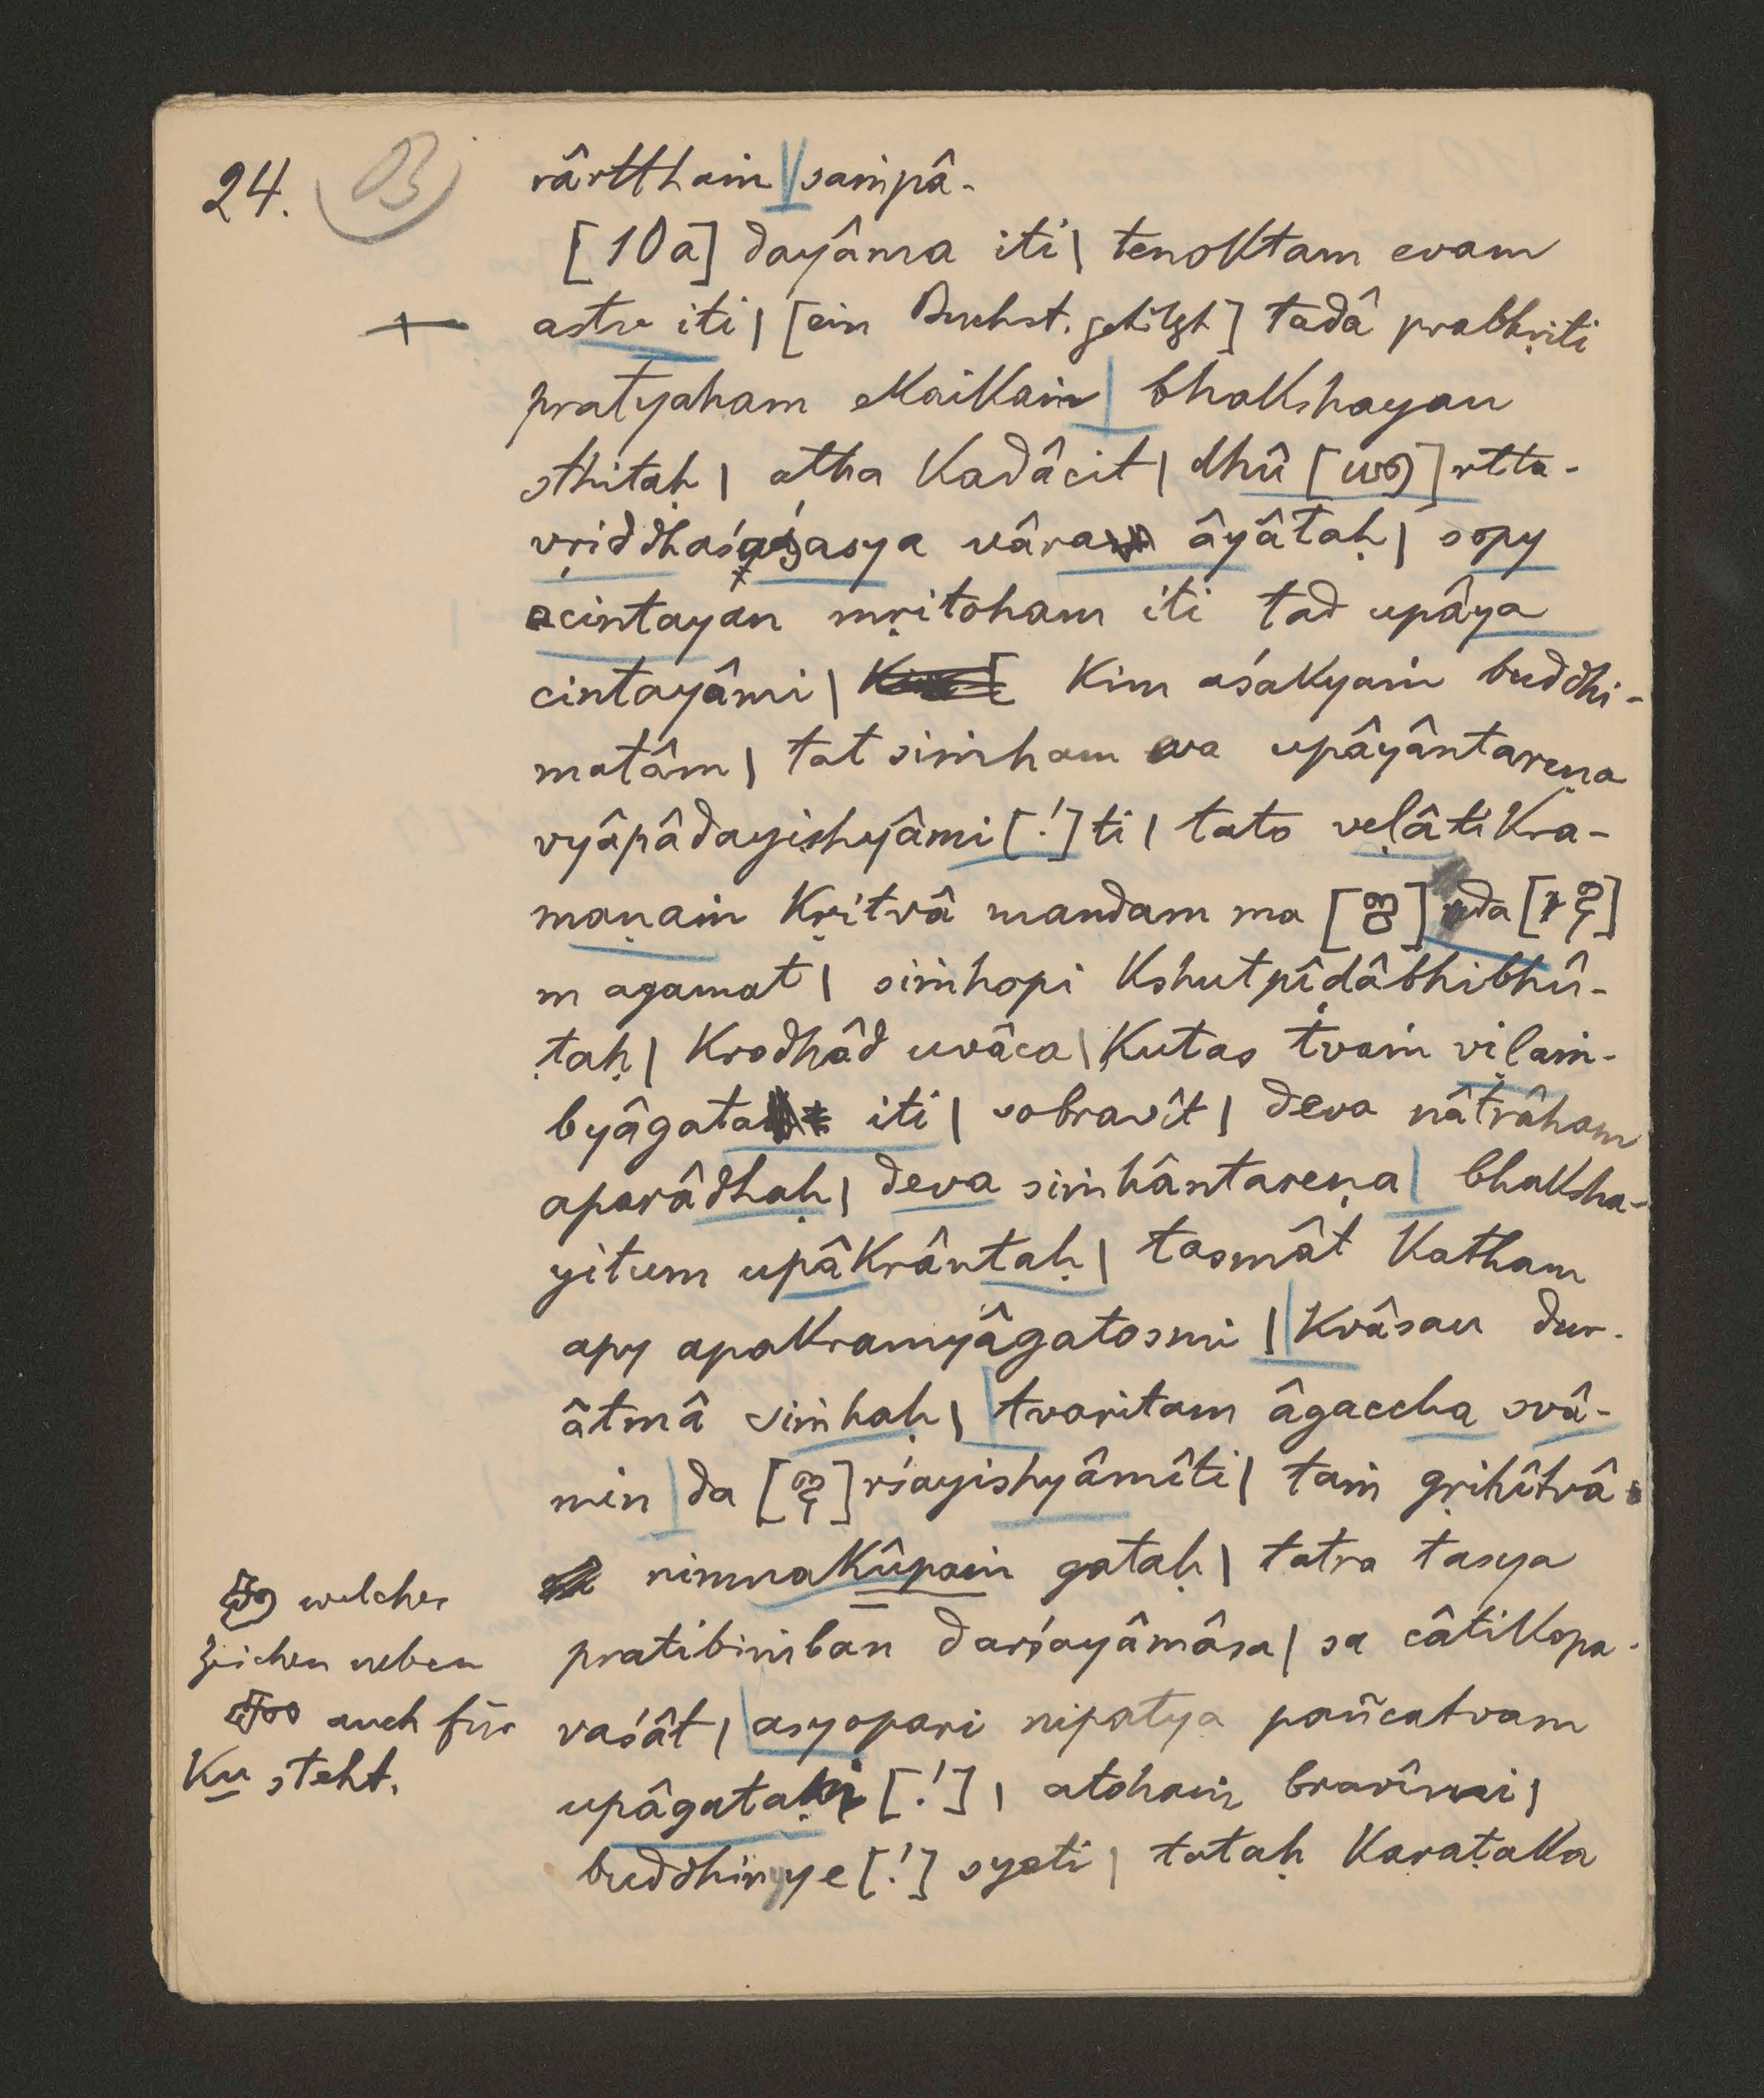 24. B
rârtthaṁ | saṁpâ-
[10a] dayâma iti | tenoktam evam
+ astv iti | [ein Buchst. getilgt] tadâ prabhṛiti
pratyaham ekaikaṁ | bhakshayan
sthitaḥ | atha kadâcit | dhû [] rtta-
vṛiddhaśaśasya vâra âyâtaḥ | sopy
acintayan mṛitoham iti tad upâya
cintayâmi | kim aśakyaṁ buddhi-
matâm | tat siṁham eva upâyântareṇa
vyâpâdayishyâmi [!] ti | tato veḷâtikra-
maṇaṁ kṛitvâ mandam ma [] nda []
m agamat | siṁhopi kshutpîḍâbhibhû-
taḥ | krodhâd uvâca | kutas tvaṁ viḷaṁ-
byâgata iti | sobravît | deva nâtrâham
aparâdhaḥ | deva siṁhântareṇa | bhaksha-
yitum upâkrântaḥ | tasmât katham
apy apakramyâgatosmi | | kvâsau dur-
âtmâ siṁhaḥ | tvaritam âgaccha svâ-
min | da [] rśayishyâmîti | taṁ gṛihîtvâ
nimnakûpaṁ gataḥ | tatra tasya
pratibiṁban darśayâmâsa | sa câtikopa-
vaśât | asyopari nipatya pañcatvam
upâgataḥ [!] | atohaṁ bravîmi |
buddhir ye [!] syeti | tataḥ Karaṭaka
welches
Zeichen neben
auch für
ku steht.